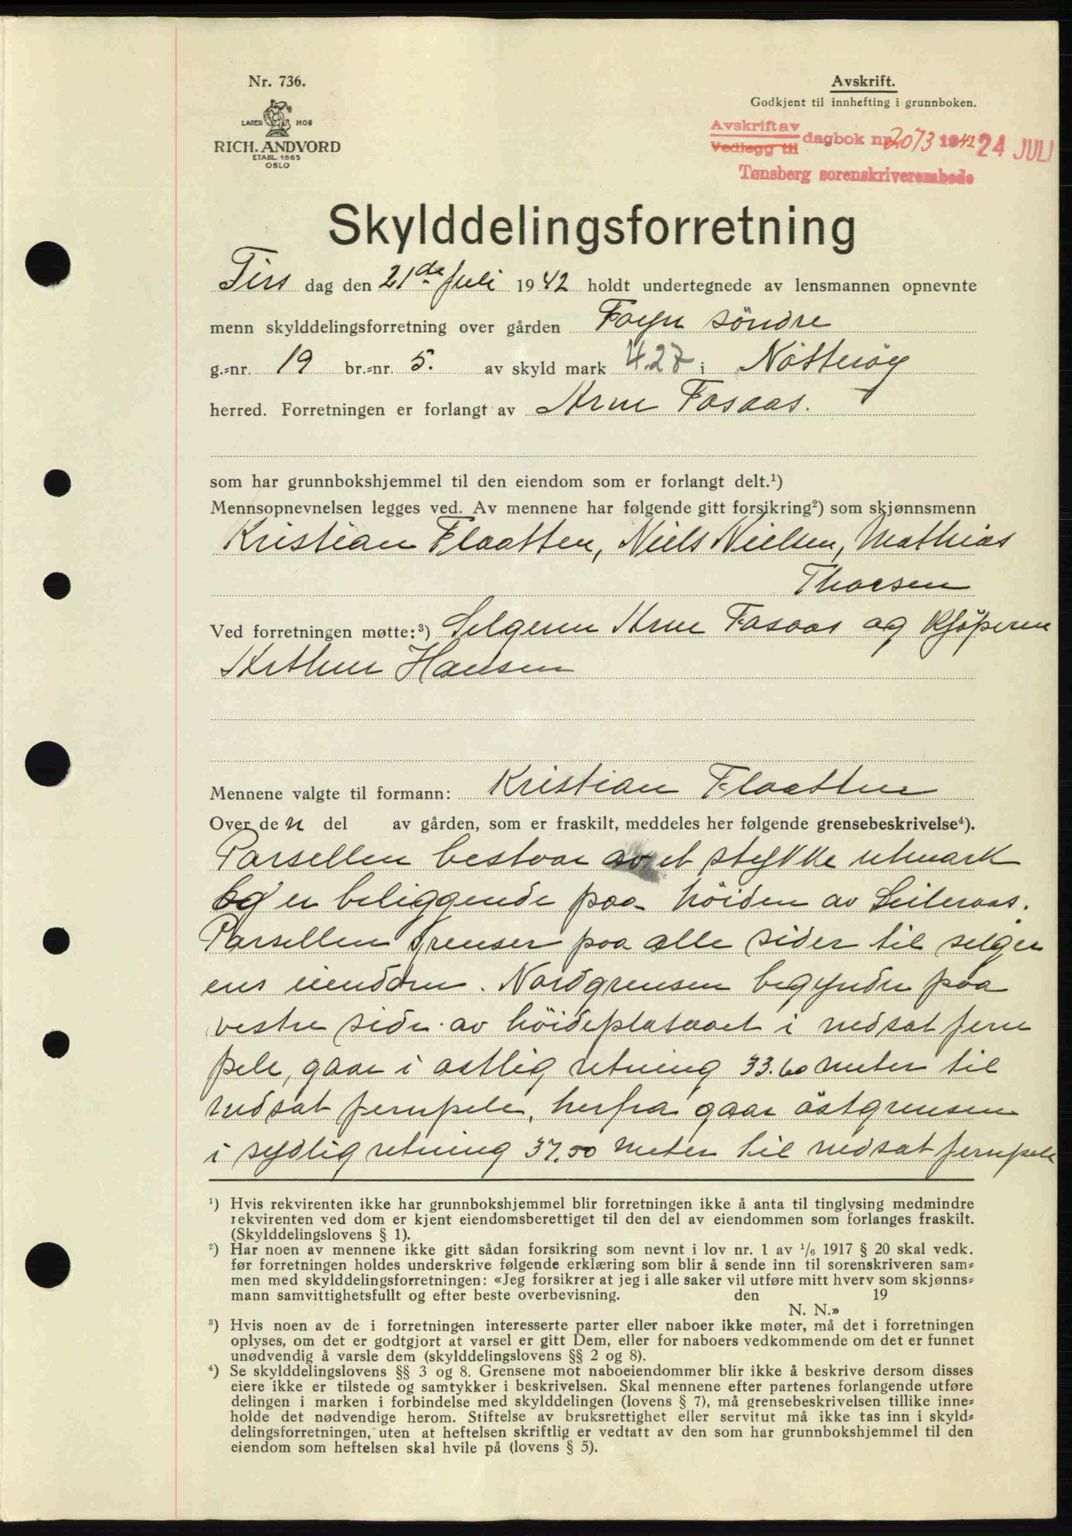 Nr. 736.
LAGER HOS
RICH. ANDVORD
ETABL. 1865
OSLO
Avskrift.
Godkjent til innhefting i grunnboken.
Avskrift av
Vedlegg til dagbok nr 2073 1942 24 JULI
Tønsberg sorenskriverembede
Skylddelingsforretning
Tirs dag den 21de Juli 1942 holdt undertegnede av lensmannen opnevnte
menn skylddelingsforretning over gården Foyn söndre
g.=nr. 19 br.=nr. 5. av skyld mark 4.27 i Nötteröy
herred. Forretningen er forlangt av Arne Fosaas.
som har grunnbokshjemmel til den eiendom som er forlangt delt.¹)
Mennsopnevnelsen legges ved. Av mennene har følgende gitt forsikring²) som skjønnsmenn
Kristian Flaatten, Niels Nielsen, Mathias
Thorsen
Ved forretningen møtte:³) Selgeren Arne Fosaas og Kjöperen
Arthur Hansen
Mennene valgte til formann: Kristian Flaatten
Over den del av gården, som er fraskilt, meddeles her følgende grensebeskrivelse⁴).
Parsellen bestaar av et stykke utmark
og er beliggende paa höiden av Seileraas.
Parsellen grenser paa alle sider til selger
ens eiendom. Nordgrensen begynder paa
vestre side av höideplataaet i nedsat jern
pele, gaar i östlig retning 33.60 meter til
nedsat jernpele, herfra gaar östgrensen
i sydlig retning 37,50 meter til nedsat jernpele
¹) Hvis rekvirenten ikke har grunnbokshjemmel blir forretningen ikke å anta til tinglysing medmindre
rekvirenten ved dom er kjent eiendomsberettiget til den del av eiendommen som forlanges fraskilt.
(Skylddelingslovens § 1).
²) Har noen av mennene ikke gitt sådan forsikring som nevnt i lov nr. 1 av ¹/₆ 1917 § 20 skal vedk.
før forretningen holdes underskrive følgende erklæring som blir å sende inn til sorenskriveren sam=
men med skylddelingsforretningen: «Jeg forsikrer at jeg i alle saker vil utføre mitt hverv som skjønns=
mann samvittighetsfullt og efter beste overbevisning. den 19
N. N.»
³) Hvis noen av de i forretningen interesserte parter eller naboer ikke møter, må det i forretningen
oplyses, om det er godtgjort at varsel er gitt Dem, eller for naboers vedkommende om det er funnet
unødvendig å varsle dem (skylddelingslovens §§ 2 og 8).
⁴) Se skylddelingslovens §§ 3 og 8. Grensene mot naboeiendommer blir ikke å beskrive dersom disses
eiere ikke er tilstede og samtykker i beskrivelsen. Skal mennene efter partenes forlangende utføre
delingen i marken i forbindelse med skylddelingen (lovens § 7), må grensebeskrivelsen tillike inne=
holde det nødvendige herom. Stiftelse av bruksrettighet eller servitut må ikke tas inn i skyld=
delingsforretningen, uten at heftelsen skriftlig er vedtatt av den som har grunnbokshjemmel til den
eiendom som heftelsen skal hvile på (lovens § 5).